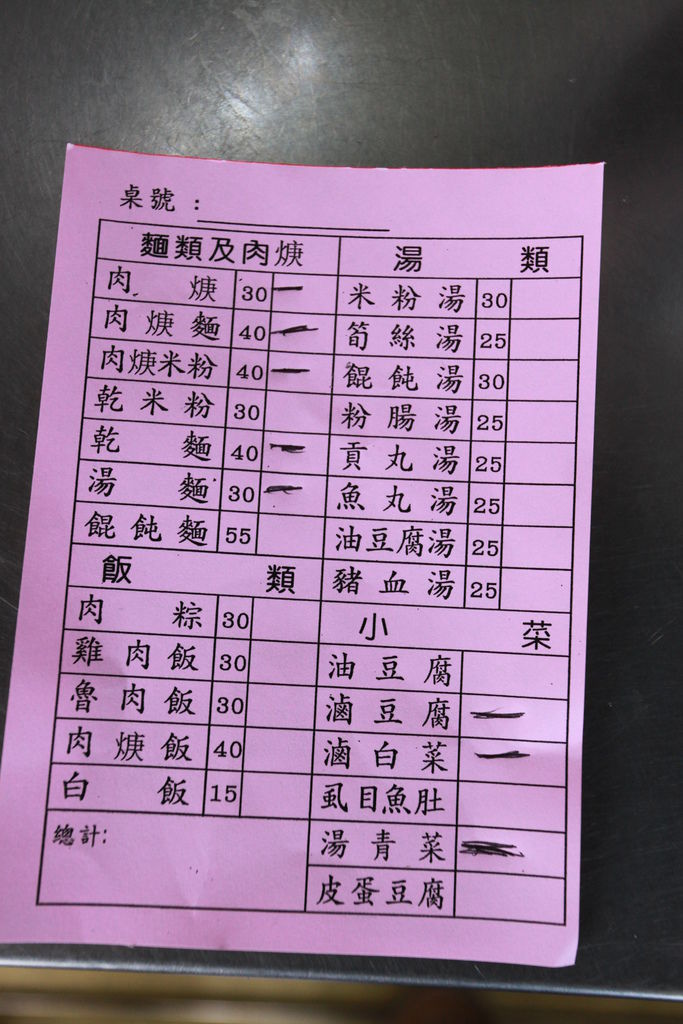 桌號：
麵類及肉焿
肉焿 30 一
肉焿麵 40 一
肉焿米粉 40 一
乾米粉 30
乾麵 40 一
湯麵 30 一
餛飩麵 55
飯類
肉粽 30
雞肉飯 30
魯肉飯 30
肉焿飯 40
白飯 15
總計:
湯類
米粉湯 30
筍絲湯 25
餛飩湯 30
粉腸湯 25
貢丸湯 25
魚丸湯 25
油豆腐湯 25
豬血湯 25
小菜
油豆腐
滷豆腐 一
滷白菜 一
虱目魚肚
湯青菜
皮蛋豆腐